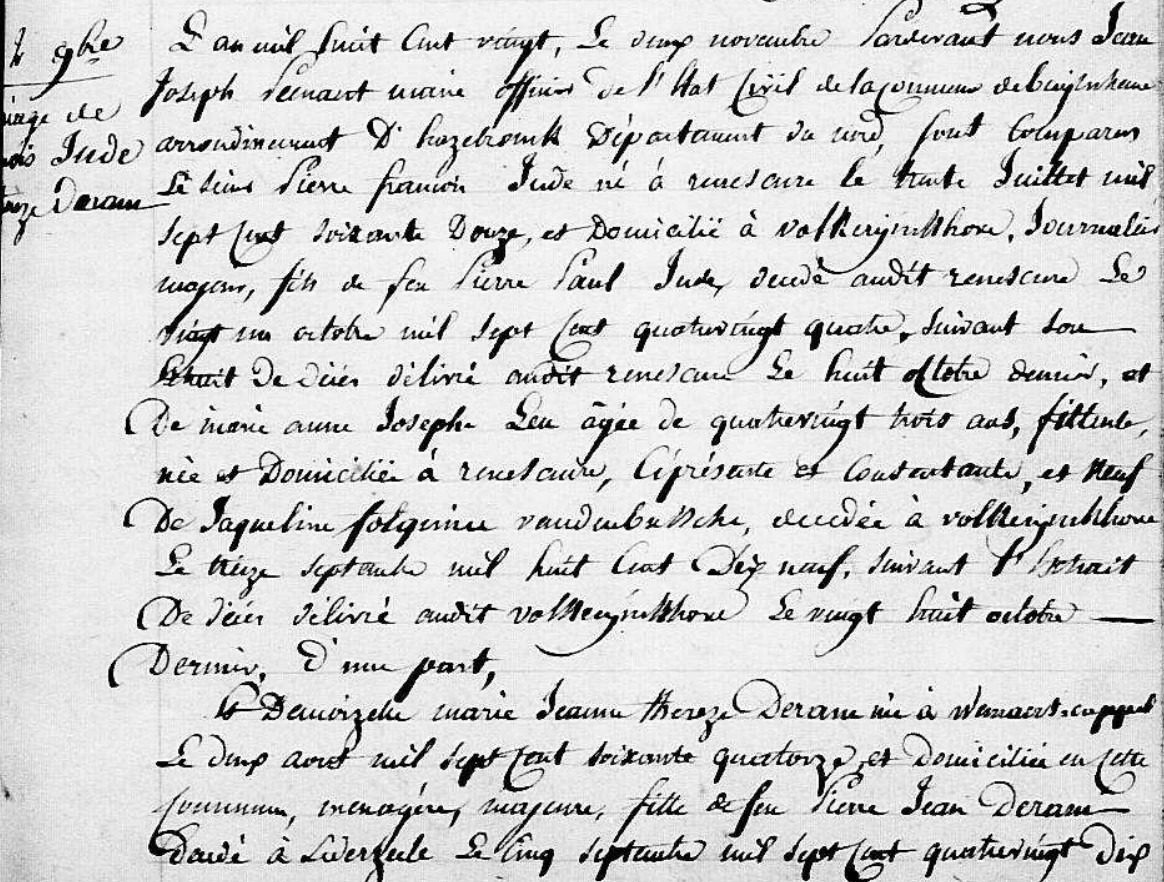 2 9bre
riage de
ois Jude
reze Deram
L'an mil huit Cent vingt, Le deux novembre Pardevant nous Jean
Joseph maire officier de l'Etat Civil de la Commune de buijsscheure
arrondissement D'hazebrouck Département du nord, sont Comparus
Le sieur Pierre francois Jude né à renescure le trente Juillet mil
sept Cent soixante Douze, et Domicilié à volkerijnckhove, Journalier
majeur, fils de feu Pierre Paul Jude, decedé audit renescure Le
vingt un octobre mil sept Cent quatrevingt quatre, suivant son
Extrait De décés délivré audit renescure Le huit octobre dernier, et
De marie anne Josephe Leu âgée de quatrevingt trois ans, fileuse,
née et Domiciliée à renescure, Ciprésente et Consentante, et veuf
De Jaqueline folquinne vandenbussche, decedée à volkerijnckhove
Le treize septembre mil huit Cent Dix neuf, suivant l'Extrait
De décés délivré audit volkerijnckhove Le vingt huit octobre
Dernier, D'une part,
Et Demoizelle marie Jeanne thereze Deram née à Wemaers-cappel
Le deux aout mil sept Cent soixante quatorze, et Domiciliée en Cette
Commune, menagére, majeure, fille de feu Pierre Jean Deram
Decedé à Lederzeele Le Cinq septembre mil sept Cent quatrevingt Dix